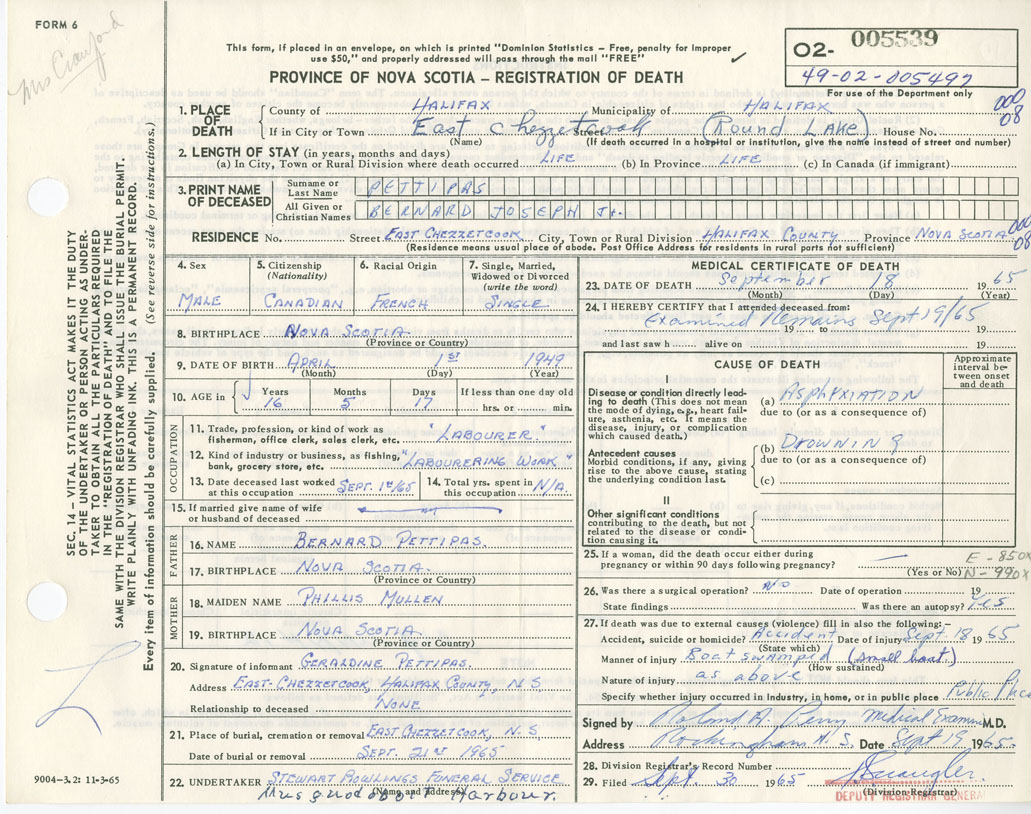 FORM 6
Mrs Crawford
This form, if placed in an envelope, on which is printed "Dominion Statistics – Free, penalty for improper
use $50," and properly addressed will pass through the mail "FREE" ✓
PROVINCE OF NOVA SCOTIA – REGISTRATION OF DEATH
O2- 005539
49-02-005497
For use of the Department only
SEC. 14 – VITAL STATISTICS ACT MAKES IT THE DUTY
OF THE UNDERTAKER OR PERSON ACTING AS UNDER-
TAKER TO OBTAIN ALL THE PARTICULARS REQUIRED
IN THE "REGISTRATION OF DEATH" AND TO FILE THE
SAME WITH THE DIVISION REGISTRAR WHO SHALL ISSUE THE BURIAL PERMIT.
WRITE PLAINLY WITH UNFADING INK. THIS IS A PERMANENT RECORD.
Every item of information should be carefully supplied. (See reverse side for instructions.)
1. PLACE OF DEATH
County of HALIFAX Municipality of HALIFAX 000 08
If in City or Town East Chezzetcook Street (Round Lake) House No.
(Name) (If death occurred in a hospital or institution, give the name instead of street and number)
2. LENGTH OF STAY (in years, months and days)
(a) In City, Town or Rural Division where death occurred LIFE (b) In Province LIFE (c) In Canada (if immigrant)
3. PRINT NAME OF DECEASED
Surname or Last Name PETTIPAS
All Given or Christian Names BERNARD JOSEPH Jr.
RESIDENCE No. Street EAST CHEZZETCOOK City, Town or Rural Division HALIFAX COUNTY Province NOVA SCOTIA 000 08
(Residence means usual place of abode. Post Office Address for residents in rural parts not sufficient)
4. Sex
MALE
5. Citizenship (Nationality)
CANADIAN
6. Racial Origin
FRENCH
7. Single, Married, Widowed or Divorced (write the word)
SINGLE
8. BIRTHPLACE NOVA SCOTIA.
(Province or Country)
9. DATE OF BIRTH APRIL 1ST 1949
(Month) (Day) (Year)
10. AGE in Years Months Days If less than one day old
16 5 17 hrs. or min.
OCCUPATION
11. Trade, profession, or kind of work as
fisherman, office clerk, sales clerk, etc. "LABOURER"
12. Kind of industry or business, as fishing,
bank, grocery store, etc. "LABOURERING WORK"
13. Date deceased last worked
at this occupation SEPT. 1st/65
14. Total yrs. spent in
this occupation N/A.
15. If married give name of wife
or husband of deceased
FATHER
16. NAME BERNARD PETTIPAS.
17. BIRTHPLACE NOVA SCOTIA.
(Province or Country)
MOTHER
18. MAIDEN NAME PHILLIS MULLEN
19. BIRTHPLACE NOVA SCOTIA.
(Province or Country)
20. Signature of informant GERALDINE PETTIPAS.
Address EAST-CHEZZETCOOK, HALIFAX COUNTY, N S
Relationship to deceased NONE
21. Place of burial, cremation or removal EAST CHEZZETCOOK, N. S.
Date of burial or removal SEPT. 21st 1965
22. UNDERTAKER STEWART ROWLINGS FUNERAL SERVICE
(Name and address)
Musquodoboit Harbour.
9004-3.2: 11-3-65
MEDICAL CERTIFICATE OF DEATH
23. DATE OF DEATH September 18 1965
(Month) (Day) (Year)
24. I HEREBY CERTIFY that I attended deceased from:
Examined Remains Sept 19/65
19 19
and last saw h alive on 19
CAUSE OF DEATH
Approximate interval between onset and death
I
Disease or condition directly leading to death (This does not mean the mode of dying, e.g., heart failure, asthenia, etc. It means the disease, injury, or complication which caused death.)
(a) Asphyxiation
due to (or as a consequence of)
Antecedent causes
Morbid conditions, if any, giving rise to the above cause, stating the underlying condition last.
(b) Drowning
due to (or as a consequence of)
(c)
II
Other significant conditions
contributing to the death, but not related to the disease or condition causing it.
25. If a woman, did the death occur either during
pregnancy or within 90 days following pregnancy?
(Yes or No)
E - 850X
N - 990X
26. Was there a surgical operation? NO Date of operation 19
State findings Was there an autopsy? Yes
27. If death was due to external causes (violence) fill in also the following:–
Accident, suicide or homicide? Accident Date of injury Sept. 18 1965
(State which)
Manner of injury Boat swamped (small boat)
(How sustained)
Nature of injury as above
Specify whether injury occurred in industry, in home, or in public place Public Place
Signed by Roland A. Perry Medical Examiner M.D.
Address Rockingham N. S. Date Sept 19 1965.
28. Division Registrar's Record Number
29. Filed Sept. 30 1965
(Division Registrar)
DEPUTY REGISTRAR GENERAL